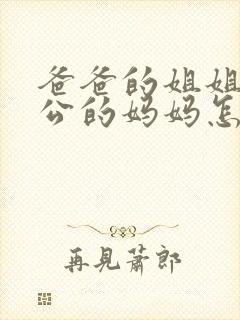 爸爸的姐姐
公的妈妈怎
再見蕭郎